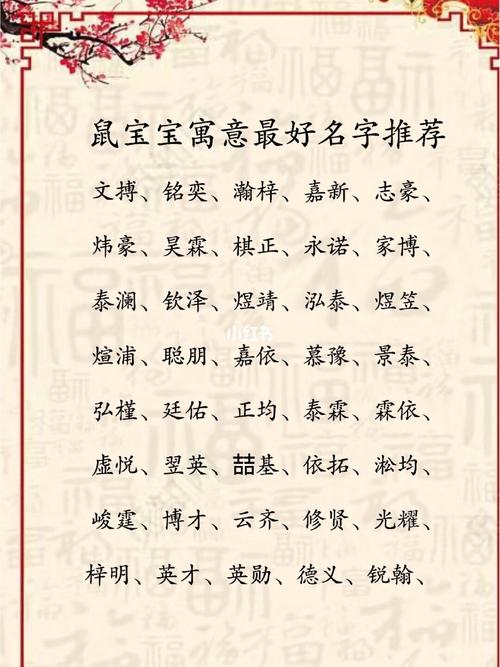 鼠宝宝寓意最好名字推荐
文搏、铭奕、瀚梓、嘉新、志豪、
炜豪、昊霖、棋正、永诺、家博、
泰澜、钦泽、煜靖、泓泰、煜笠、
小红书
煊浦、聪朋、嘉依、慕豫、景泰、
弘槿、廷佑、正均、泰霖、霖依、
虚悦、翌英、喆基、依拓、淞均、
峻霆、博才、云齐、修贤、光耀、
梓明、英才、英勋、德义、锐翰、